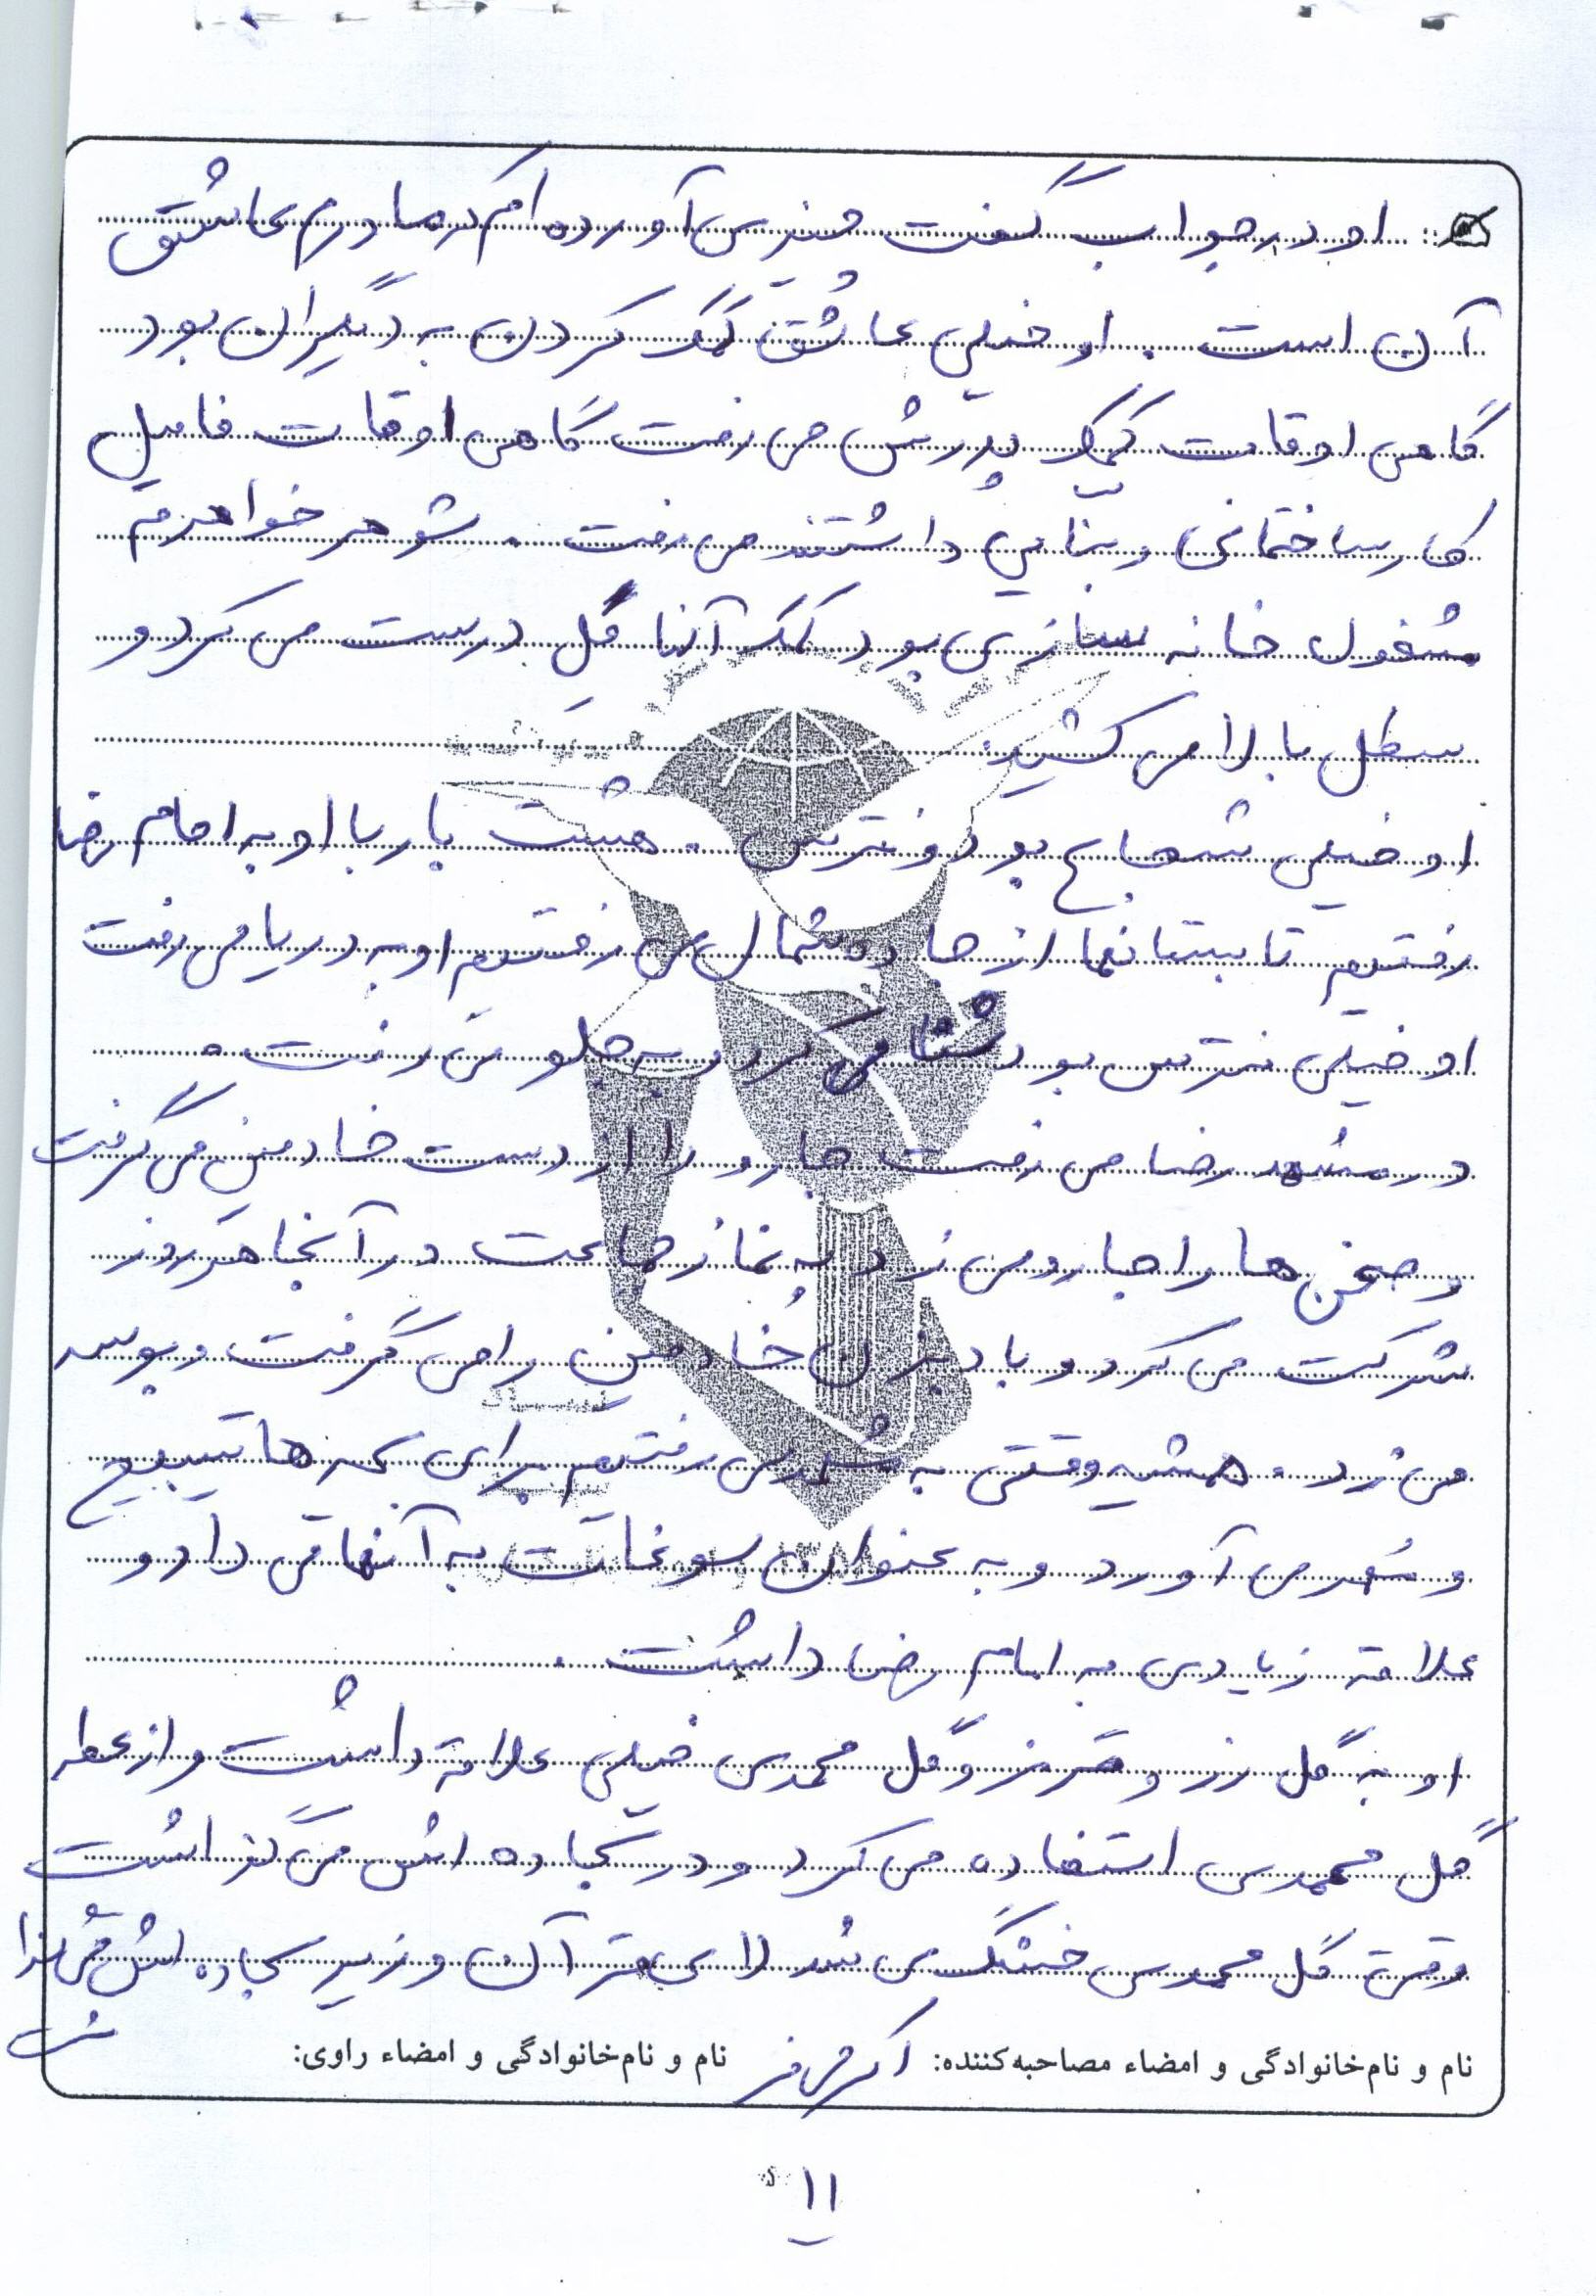 او در جواب گفت چیزی آورده ام که مادرم عاشق
آن است. او خیلی عاشق کمک کردن به دیگران بود
گاهی اوقات کمک پدرش می رفت گاهی اوقات فامیل
کار ساختمانی و بنّایی داشتند می رفت. شوهر خواهرم
مشغول خانه سازی بود کمک آنها گِل درست می کرد و
سطل بالا می کشید.
او خیلی شجاع بود و نترس. هشت بار با او به امام رضا
رفتیم تابستانها از جاده شمال می رفتیم او به دریا می رفت
او خیلی نترس بود شنا می کرد و به جلو می رفت.
در مشهد رضا می رفت جارو را از دست خادمین می گرفت
و صحن ها را جارو می زد به نماز جماعت در آنجا هر روز
شرکت می کرد و بادبزن خادمین را می گرفت و بوسه
می زد. همشیه وقتی به مشهد می رفتیم برای بچه ها تسبیح
و مُهر می آورد و به عنوان سوغات به آنها می داد و
علاقه زیادی به امام رضا داشت.
او به گل رز و قرمز و گل محمدی خیلی علاقه داشت و از عطر
گل محمدی استفاده می کرد و در سجاده اش می گذاشت
وقتی گل محمدی خشک می شد لای قرآن و زیر سجاده اش می گذا
شت
نام و نام‌خانوادگی و امضاء مصاحبه‌کننده: نام و نام‌خانوادگی و امضاء راوی:
۱۱